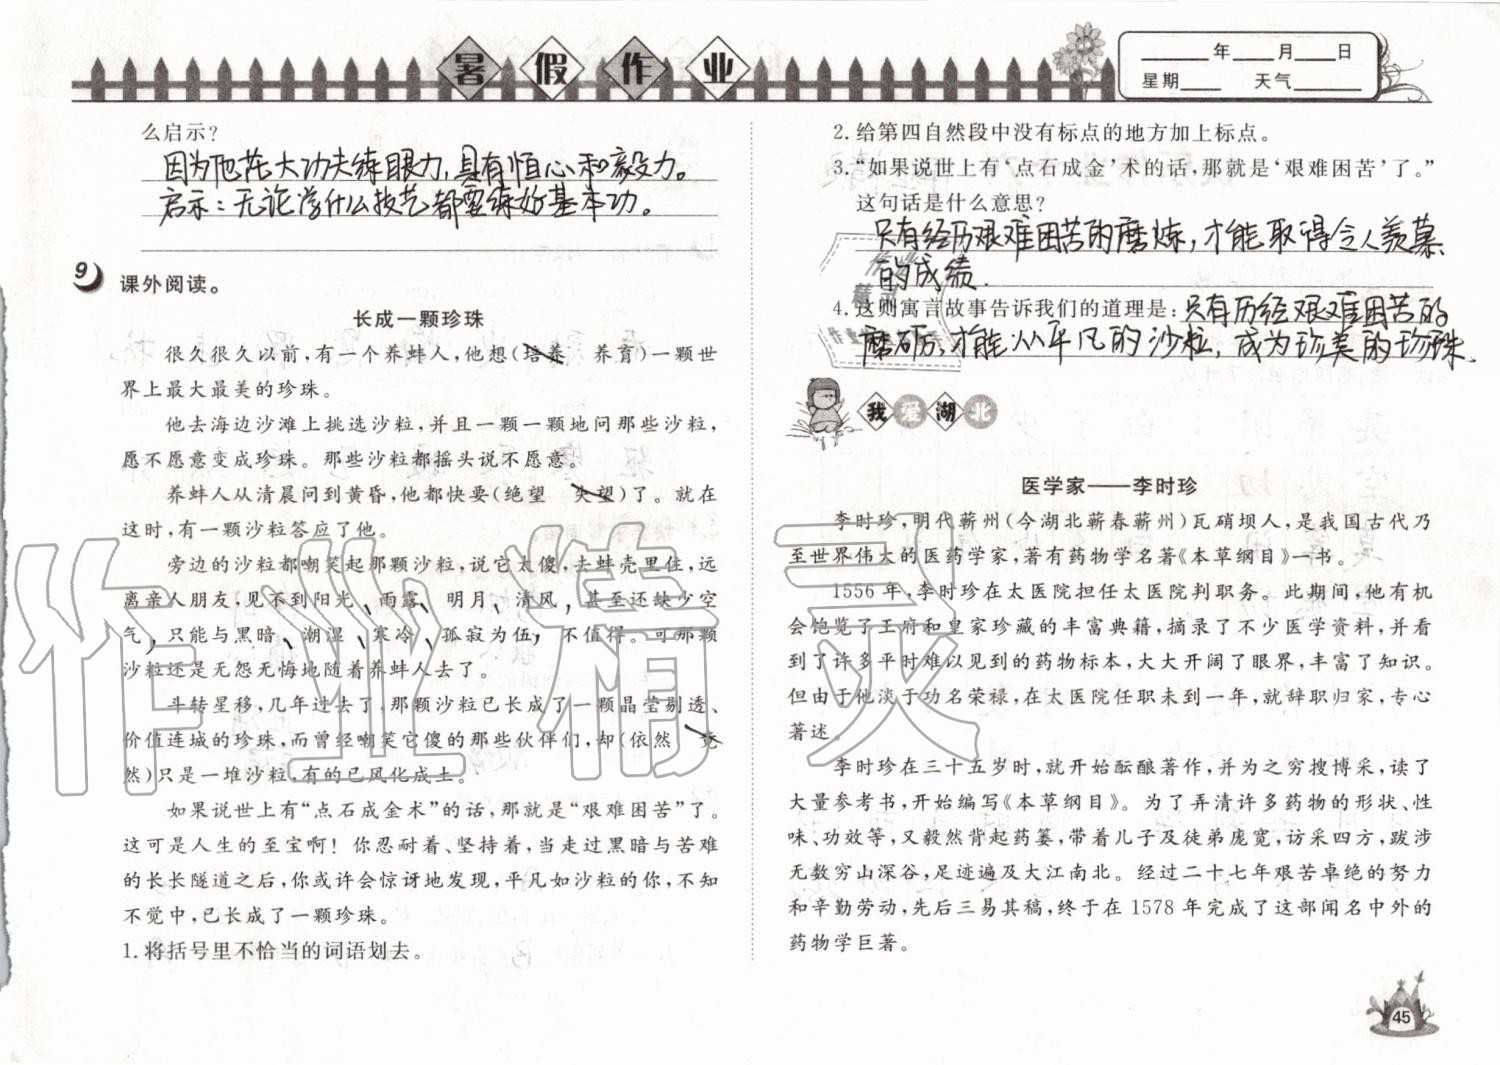 暑假作业
____年___月___日
星期____ 天气______
么启示?
因为他花大功夫练眼力,具有恒心和毅力。
启示:无论学什么技艺都要练好基本功。
9 课外阅读。
长成一颗珍珠
很久很久以前,有一个养蚌人,他想(培养 养育)一颗世
界上最大最美的珍珠。
他去海边沙滩上挑选沙粒,并且一颗一颗地问那些沙粒,
愿不愿意变成珍珠。那些沙粒都摇头说不愿意。
养蚌人从清晨问到黄昏,他都快要(绝望 失望)了。就在
这时,有一颗沙粒答应了他。
旁边的沙粒都嘲笑起那颗沙粒,说它太傻,去蚌壳里住,远
离亲人朋友,见不到阳光、雨露、明月、清风,甚至还缺少空
气,只能与黑暗、潮湿、寒冷、孤寂为伍,不值得。可那颗
沙粒还是无怨无悔地随着养蚌人去了。
斗转星移,几年过去了,那颗沙粒已长成了一颗晶莹剔透、
价值连城的珍珠,而曾经嘲笑它傻的那些伙伴们,却(依然 竟
然)只是一堆沙粒,有的已风化成土。
如果说世上有“点石成金术”的话,那就是“艰难困苦”了。
这可是人生的至宝啊!你忍耐着、坚持着,当走过黑暗与苦难
的长长隧道之后,你或许会惊讶地发现,平凡如沙粒的你,不知
不觉中,已长成了一颗珍珠。
1.将括号里不恰当的词语划去。
2.给第四自然段中没有标点的地方加上标点。
3.“如果说世上有‘点石成金’术的话,那就是‘艰难困苦’了。”
这句话是什么意思?
只有经历艰难困苦的磨炼,才能取得令人羡慕
的成绩.
4.这则寓言故事告诉我们的道理是:只有历经艰难困苦的
磨砺,才能从平凡的沙粒,成为珍美的珍珠.
我爱湖北
医学家——李时珍
李时珍,明代蕲州(今湖北蕲春蕲州)瓦硝坝人,是我国古代乃
至世界伟大的医药学家,著有药物学名著《本草纲目》一书。
1556年,李时珍在太医院担任太医院判职务。此期间,他有机
会饱览了王府和皇家珍藏的丰富典籍,摘录了不少医学资料,并看
到了许多平时难以见到的药物标本,大大开阔了眼界,丰富了知识。
但由于他淡于功名荣禄,在太医院任职未到一年,就辞职归家,专心
著述。
李时珍在三十五岁时,就开始酝酿著作,并为之穷搜博采,读了
大量参考书,开始编写《本草纲目》。为了弄清许多药物的形状、性
味、功效等,又毅然背起药篓,带着儿子及徒弟庞宽,访采四方,跋涉
无数穷山深谷,足迹遍及大江南北。经过二十七年艰苦卓绝的努力
和辛勤劳动,先后三易其稿,终于在1578年完成了这部闻名中外的
药物学巨著。
45
作业精灵